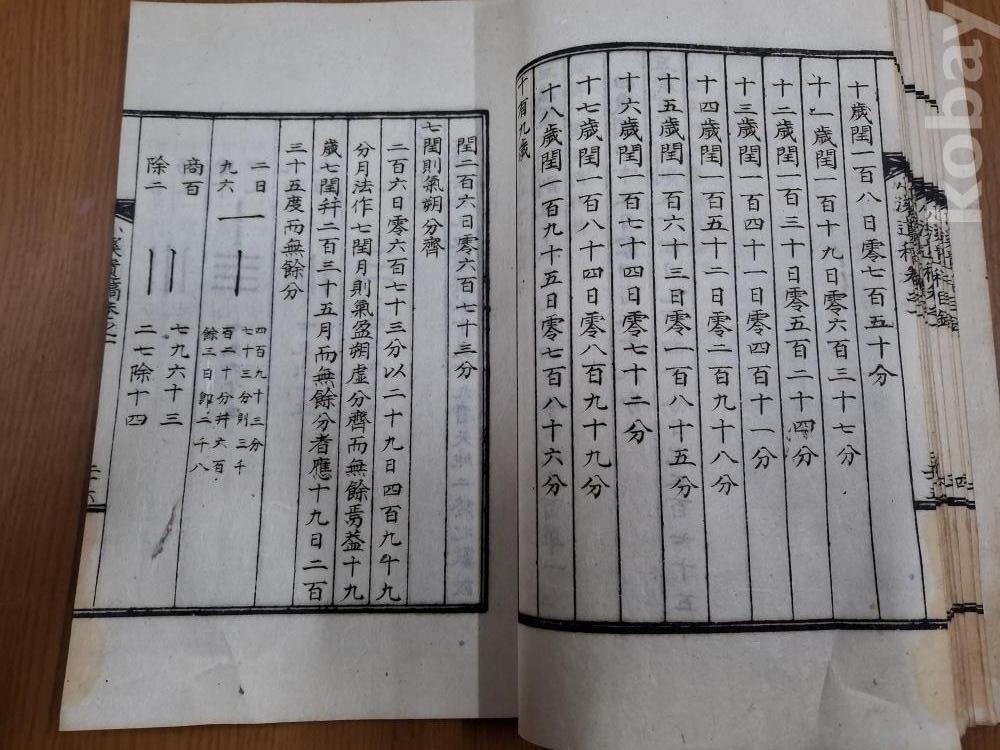 十歲閏一百八日零七百五十分
十一歲閏一百十九日零六百三十七分
十二歲閏一百三十日零五百二十四分
十三歲閏一百四十一日零四百十一分
十四歲閏一百五十二日零二百九十八分
十五歲閏一百六十三日零一百八十五分
十六歲閏一百七十四日零七十二分
十七歲閏一百八十四日零八百九十九分
十八歲閏一百九十五日零七百八十六分
十有九歲
閏二百六日零六百七十三分
七閏則氣朔分齊
二百六日零六百七十三分以二十九日四百九十九
分月法作七閏月則氣盈朔虛分齊而無餘焉蓋十九
歲七閏幷二百三十五月而無餘分者應十九日二百
三十五度而無餘分
二日
四百九十三分
七十三分則三千
九六
百二十分幷六百
餘三日卽二千八
商百
七九六十三
除二
二七除十四
kobay